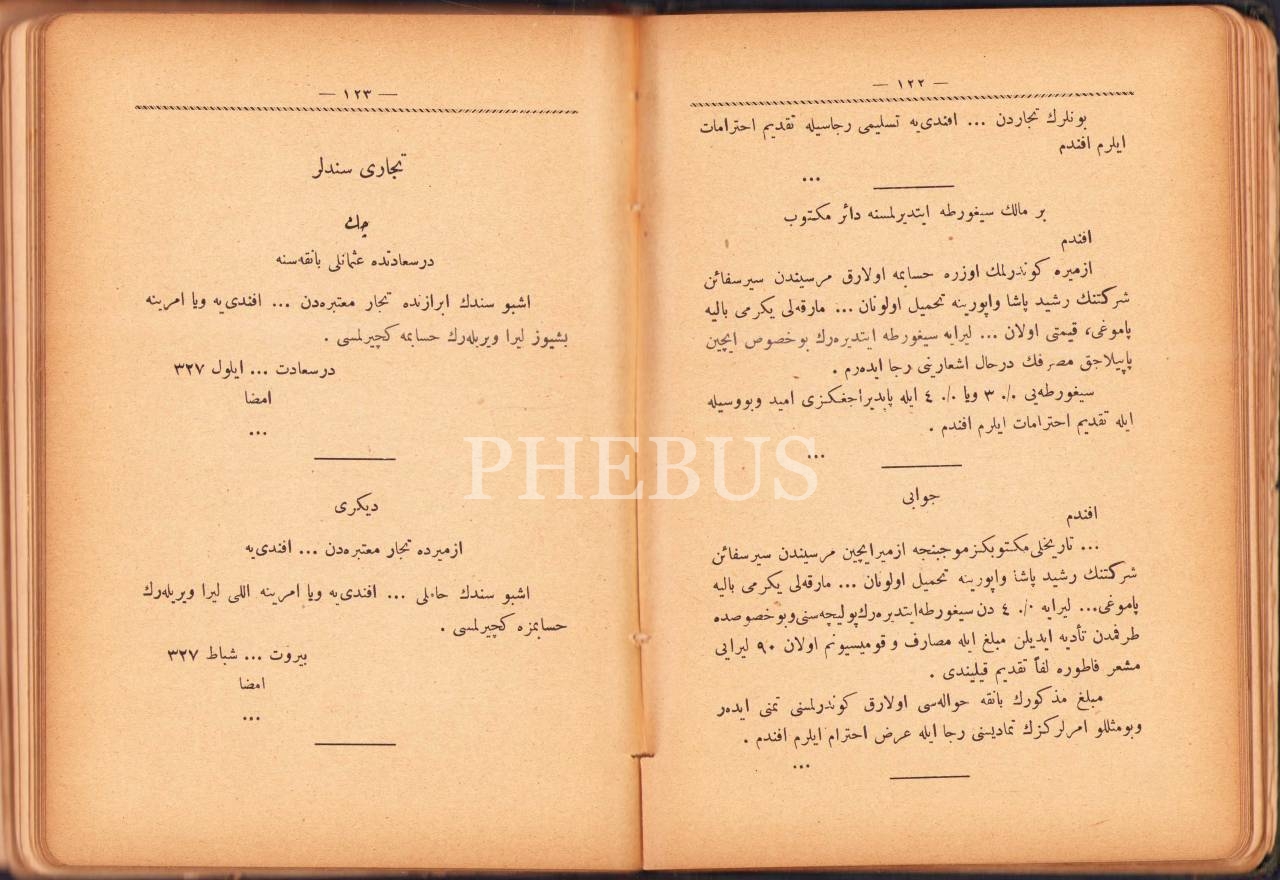 — ١٢٢ —
بونلرك تجاردن ... افندی‌یه تسلیمی رجاسیله تقدیم احترامات
ایلرم افندم
...
بر مالك سیغورطه ایتدیرلمسنه دائر مكتوب
افندم
ازمیره كوندرلمك اوزره حسابمه اولارق مرسیندن سیرسفائن
شركتنك رشید پاشا واپورینه تحمیل اولونان ... مارقه‌لی یكرمی بالیه
پاموغی، قیمتی اولان ... لیرایه سیغورطه ایتدیره‌رك بوخصوص ایچین
یاپیلاجق مصرفك درحال اشعارینی رجا ایده‌رم .
سیغورطه‌یی ٠/٠ ٣ ویا ٠/٠ ٤ ایله یاپدیراجغكزی امید وبووسیله
ایله تقدیم احترامات ایلرم افندم .
...
جوابی
افندم
... تاریخلی مكتوبكز موجبنجه ازمیر ایچین مرسیندن سیرسفائن
شركتنك رشید پاشا واپورینه تحمیل اولونان ... مارقه‌لی یكرمی بالیه
پاموغی... لیرایه ٠/٠ ٤ دن سیغورطه ایتدیره‌رك پولیچه‌سنی وبوخصوصده
طرفمدن تأدیه ایدیلن مبلغ ایله مصارف و قومیسیونم اولان ٩٠ لیرایی
مشعر فاطوره لفاً تقدیم قیلیندی .
مبلغ مذكورك بانقه حواله‌سی اولارق كوندرلمسنی تمنی ایده‌ر
وبومثللو امرلركزك تمادیسنی رجا ایله عرض احترام ایلرم افندم .
...
— ١٢٣ —
تجاری سندلر
چك
درسعادتده عثمانلی بانقه‌سنه
اشبو سندك ابرازنده تجار معتبره‌دن ... افندی‌یه ویا امرینه
بشیوز لیرا ویریله‌رك حسابمه كچیرلمسی .
درسعادت ... ایلول ٣٢٧
امضا
...
دیكری
ازمیرده تجار معتبره‌دن ... افندی‌یه
اشبو سندك حاملی ... افندی‌یه ویا امرینه اللی لیرا ویریله‌رك
حسابمزه كچیرلمسی .
بیروت ... شباط ٣٢٧
امضا
...
PHEBUS